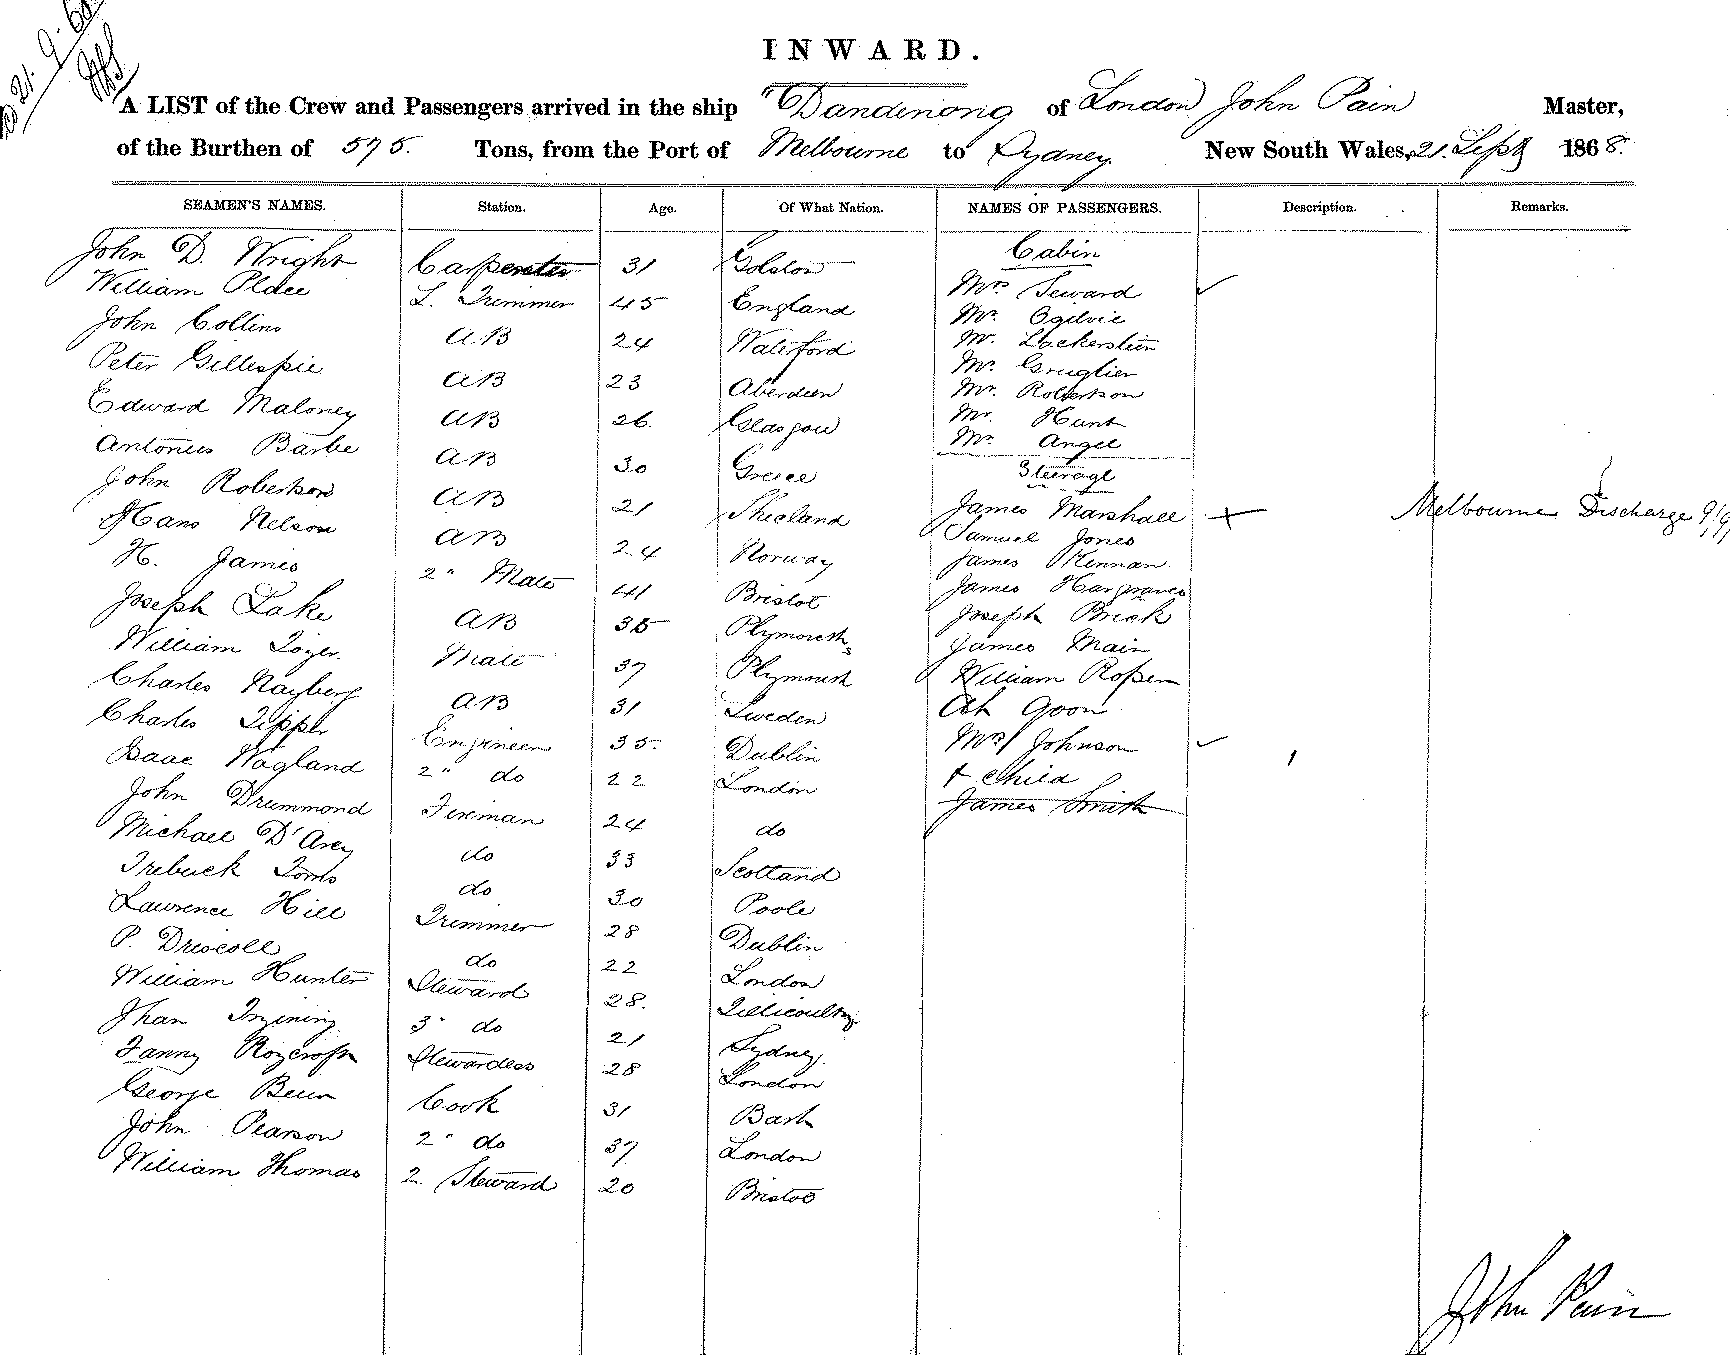 21.9.68
INWARD.
A LIST of the Crew and Passengers arrived in the ship "Dandenong of London John Pain Master,
of the Burthen of 575. Tons, from the Port of Melbourne to Sydney New South Wales, 21. Sept 1868.
SEAMEN'S NAMES. Station. Age. Of What Nation. NAMES OF PASSENGERS. Description. Remarks.
Cabin
John D. Wright Carpenter 31
William Place L. Trimmer 45 England Mrs Seward
John Collins AB 24 Waterford Mr Ogilvie
Mr.
Peter Gillespie AB 23 Aberdeen Mr
Mr Robertson
Edward Maloney AB 26. Glasgow Mr Hunt
Mr Angel
Antonius Barbe AB 30 Greece Steerage
John Robertson AB 21 James Marshall Melbourne Discharge
Hans Nelson AB 24 Norway Samuel Jones
James
H. James 2" Mate 41 Bristol James Hargraves
Joseph Lake AB 35 Plymouth Joseph Brick
James Main
William Mate 37 Plymouth William
Charles AB 31 Sweden Ah Goon
Charles Tipper Engineer 35. Dublin Mrs Johnson
Isaac Wagland 2" do 22 London + Child
John Drummond Fireman 24 do James Smith
Michael D'Arcy do 33 Scotland
do 30 Poole
Lawrence Hill Trimmer 28 Dublin
P. Driscoll do 22 London
William Hunter Steward 28. Tillicoultry
3" do 21 Sydney.
Fanny Roycroft Stewardess 28 London
George Cook 31
John Pearson 2" do 37 London
William Thomas 2. Steward 20 Bristol
John Pain